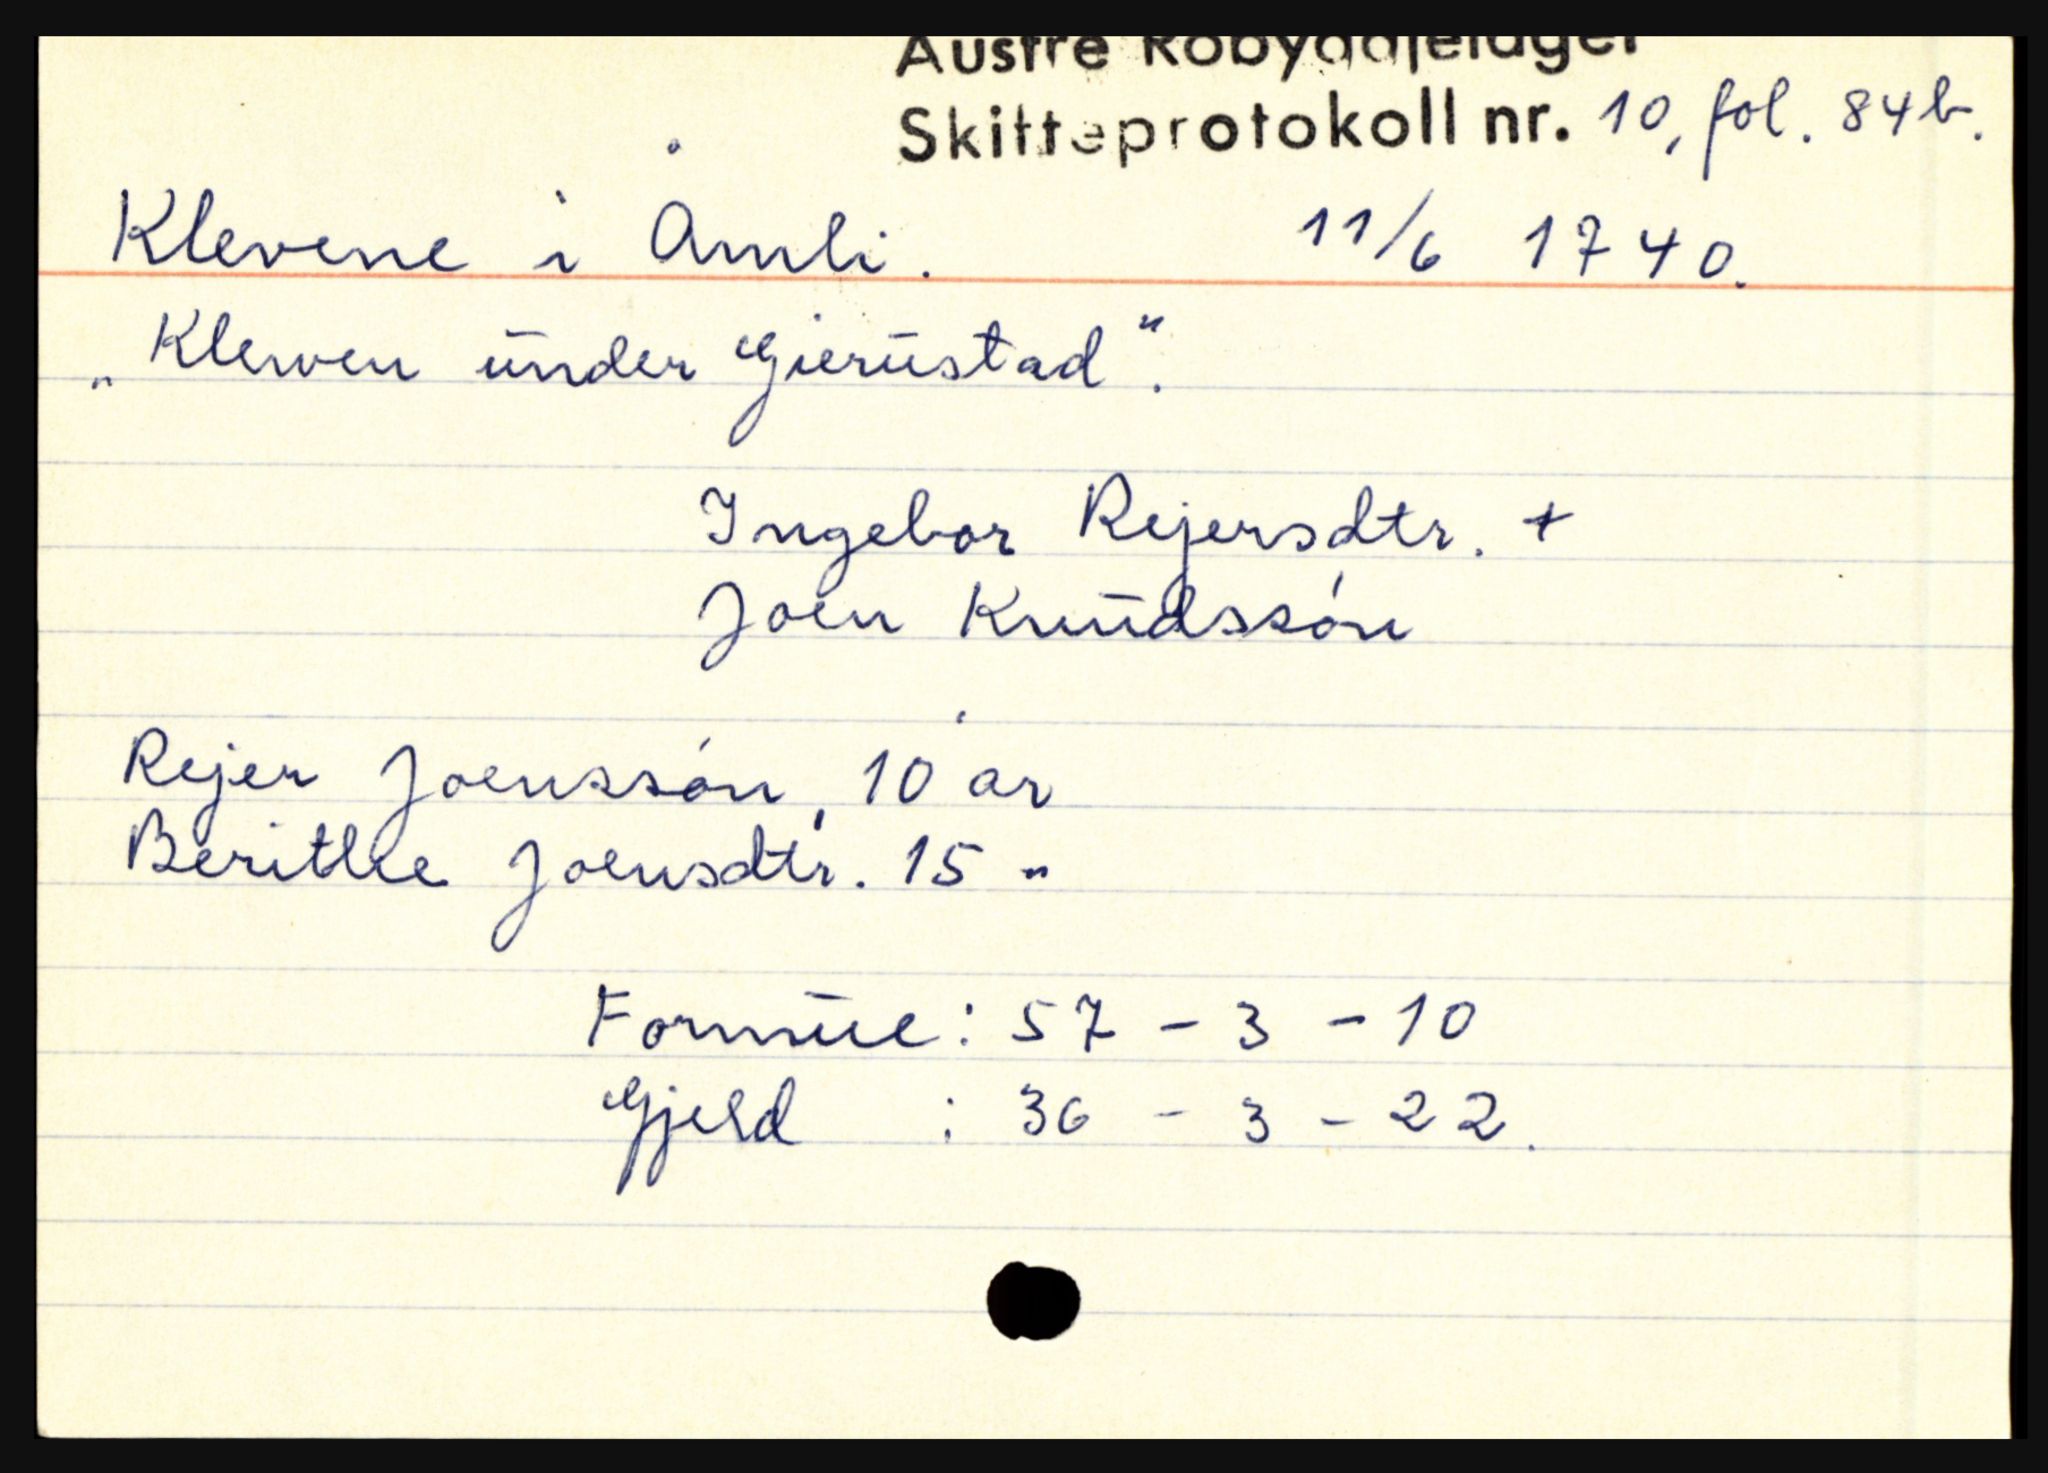 Austre Robyggjelaget
Skifteprotokoll nr. 10, fol. 84b.
Klevene i Åmli. 11/6 1740.
„Klewen ünder Gierüstad".
Ingebor Rejersdtr. +
Joen Knüdssón
Rejer Joenssón, 10 år
Berithe Joensdtr. 15 "
Formüe: 57 - 3 - 10
Gjeld : 36 - 3 - 22.